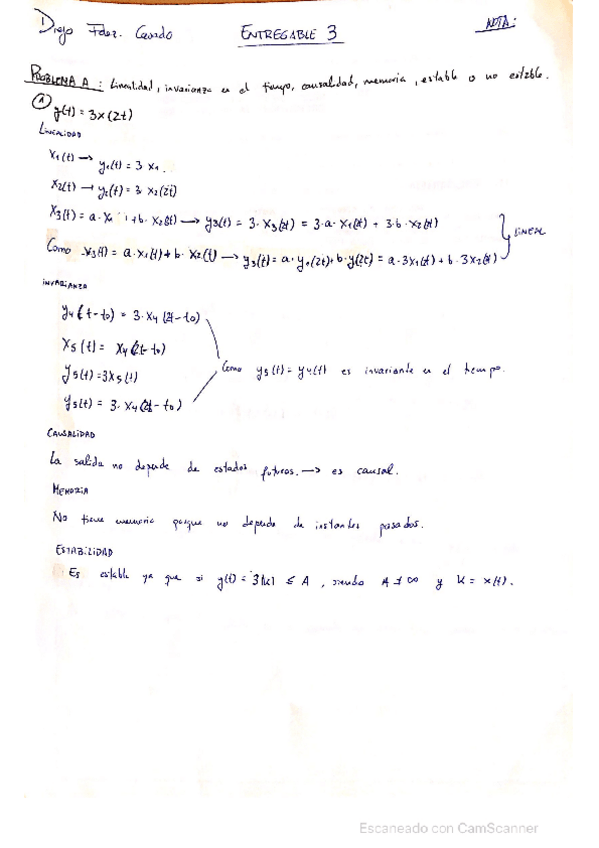 Diego Fdez. Casado
ENTREGABLE 3
NOTA:
PROBLEMA A: Linealidad, invarianza en el tiempo, causalidad, memoria, estable o no estable.
1 y(t) = 3x(2t)
LINEALIDAD
x1(t) → y1(t) = 3 x1.
x2(t) → y2(t) = 3 x2(2t)
x3(t) = a·x1 + b·x2(t) → y3(t) = 3·x3(2t) = 3·a·x1(2t) + 3·b·x2(2t)
Como x3(t) = a·x1(t) + b·x2(t) → y3(t) = a·y1(2t) + b·y(2t) = a·3x1(2t) + b·3x2(2t)
LINEAL
INVARIANZA
y4(t-to) = 3·x4(2t-to)
x5(t) = x4(2t-to)
y5(t) = 3x5(t)
y5(t) = 3·x4(2t-to)
Como y5(t) = y4(t) es invariante en el tiempo.
CAUSALIDAD
La salida no depende de estados futuros. → es causal.
MEMORIA
No tiene memoria porque no depende de instantes pasados.
ESTABILIDAD
Es estable ya que si y(t) = 3|k| ≤ A, siendo A ≠ ∞ y k = x(t).
Escaneado con CamScanner